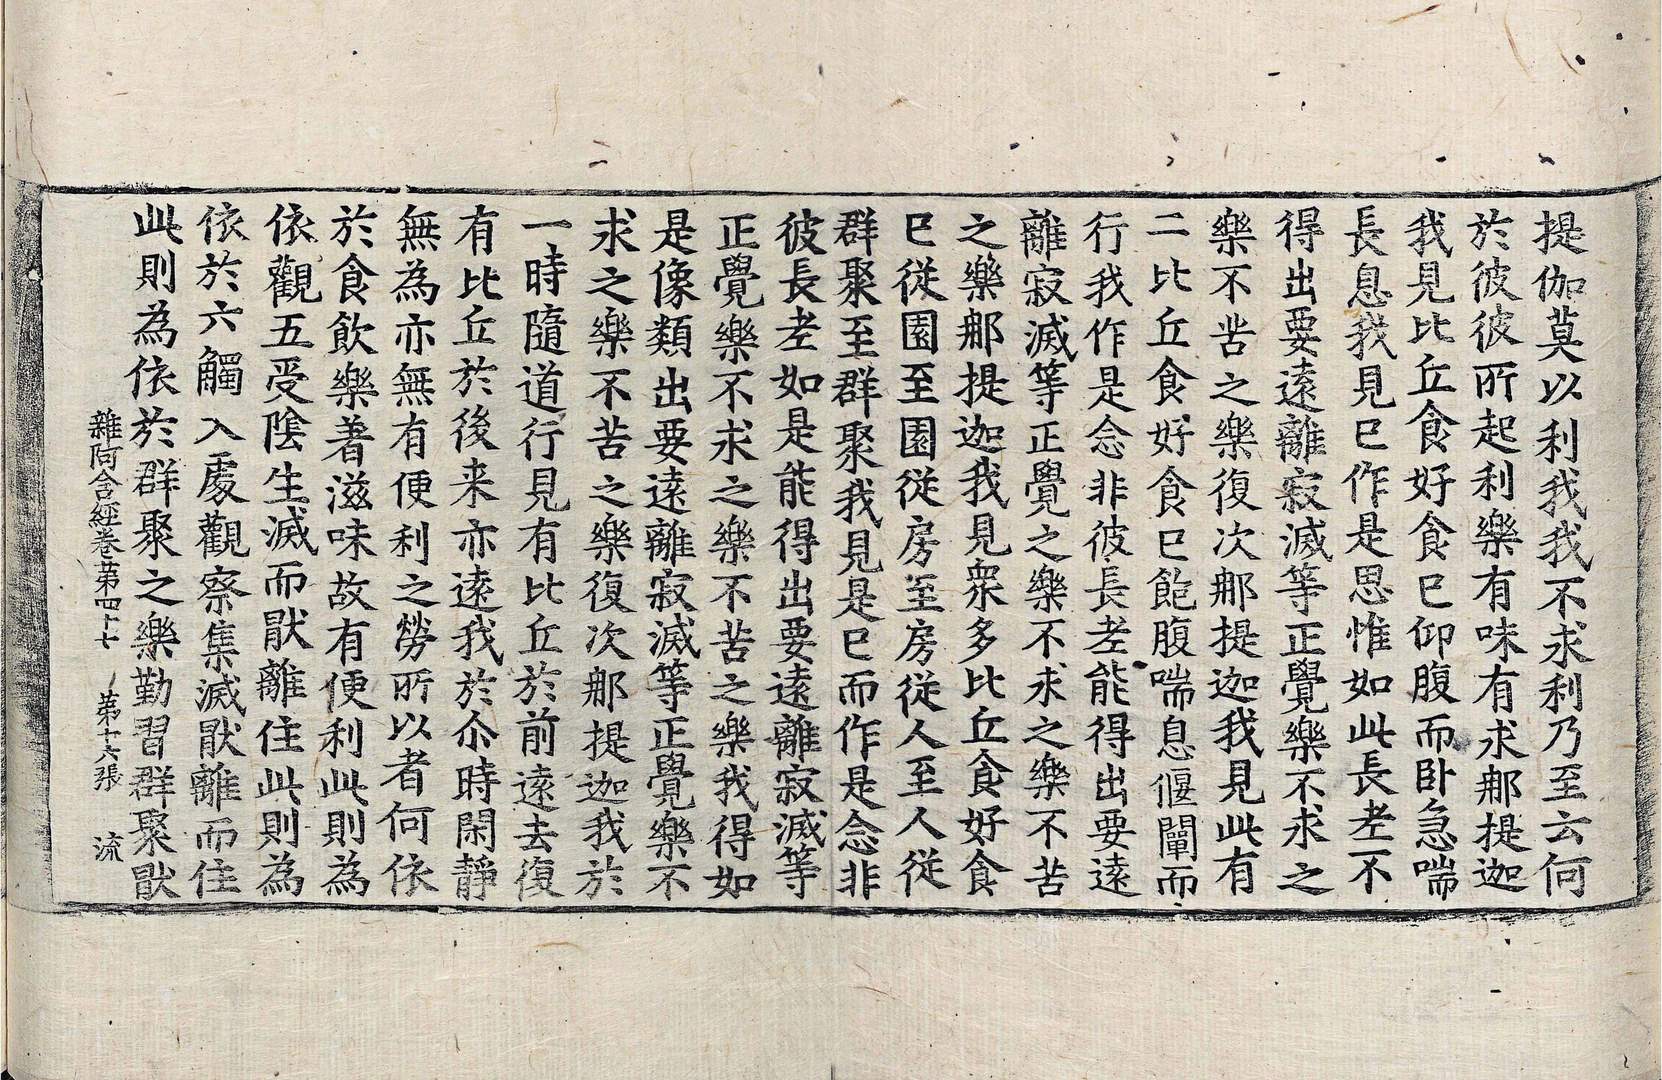 提伽莫以利我我不求利乃至云何
於彼彼所起利樂有味有求郍提迦
我見比丘食好食已仰腹而卧急喘
長息我見已作是思惟如此長老不
得出要遠離寂滅等正覺樂不求之
樂不苦之樂復次郍提迦我見此有
二比丘食好食已飽腹喘息偃闡而
行我作是念非彼長老能得出要遠
離寂滅等正覺之樂不求之樂不苦
之樂郍提迦我見衆多比丘食好食
已從園至園從房至房從人至人從
群聚至群聚我見是已而作是念非
彼長老如是能得出要遠離寂滅等
正覺樂不求之樂不苦之樂我得如
是像類出要遠離寂滅等正覺樂不
求之樂不苦之樂復次郍提迦我於
一時隨道行見有比丘於前遠去復
有比丘於後来亦遠我於尒時閑靜
無為亦無有便利之勞所以者何依
於食飲樂著滋味故有便利此則為
依觀五受陰生滅而猒離住此則為
依於六觸入處觀察集滅猒離而住
此則為依於群聚之樂勤習群聚猒
雜阿含經卷第四十七 第十六張 流